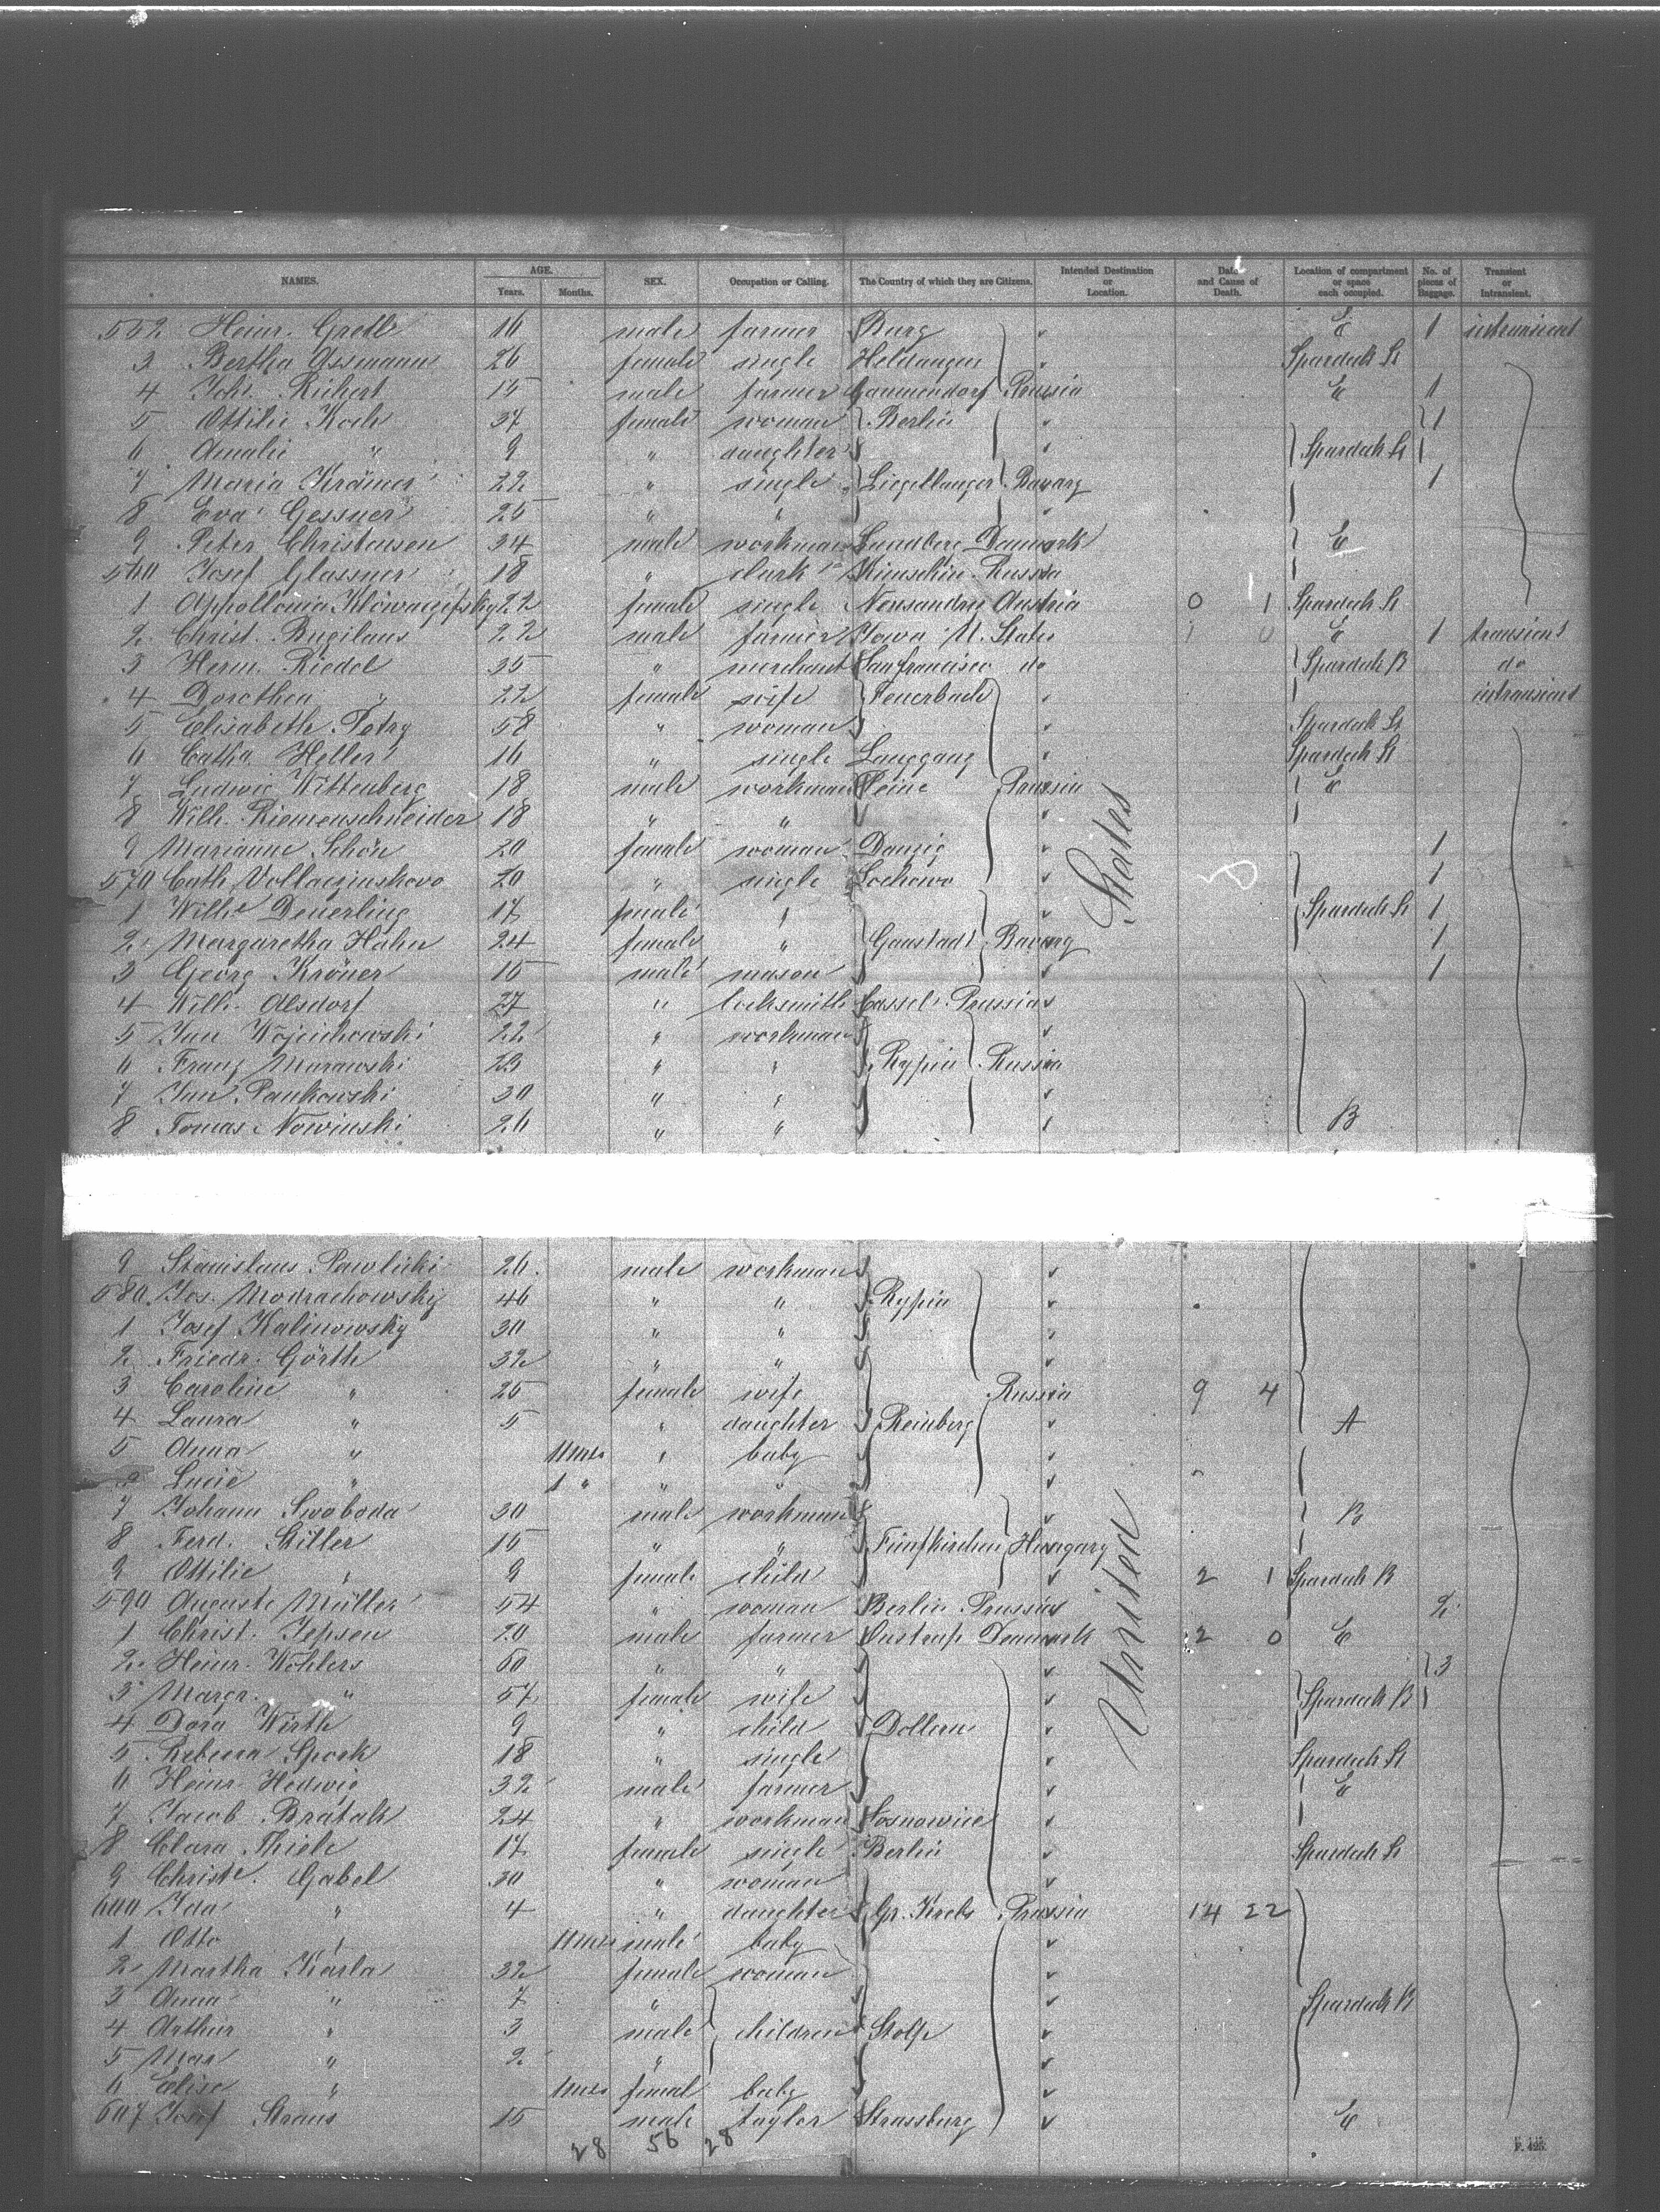 NAMES. AGE. Years. Months. SEX. Occupation or Calling. The Country of which they are Citizens. Intended Destination or Location. Date and Cause of Death. Location of compartment or space each occupied. No. of pieces of Baggage. Transient or Intransient.
552 Heinr. Grelle 16 male farmer Burg E 1 intransient
3 Bertha Assmann 26 female single Heldangen Spardeck St
4 Joh. Richert 15 male farmer Prussia E 1
5 Ottilie Koch 37 female woman Berlin 1
6 Amalie " 9 " daughter Spardeck St
7 Maria Krämer 22 " single Bavarg 1
8 Eva Gessner 25 " "
9 Peter Christensen 34 male workman Lundberg Danmark E
560 Josef Glassner 18 " clark Russia
1 Appollonia 22 female single Neusandez Austria 0 1 Spardeck St
2 Christ. Bugilaus 22 male farmer Iowa U. States 1 0 E 1 transient
3 Herm. Riedel 35 " merchant San francisco do Spardeck B do
4 Dorothea " 22 female wife Feuerbach intransient
5 Elisabeth Petry 58 " woman Spardeck St
6 Catha. Heller 16 " single Langgang Spardeck St
7 Ludwig Wittenberg 18 male workman Peine Prussia E
8 Wilh. Riemenschneider 18 " "
9 Marianne Schön 20 female woman Danzig 1
570 Cath. 20 " single Lochowo 1
1 Wilh. Deuerling 17 female " Spardeck St 1
2 Margaretha Hahn 24 female " Gaustadt Bavarg 1
3 Georg Kröner 15 male mason 1
4 Wilh. Alsdorf 27 " locksmith Cassel Prussia
5 Jan Wojcichowski 22 " workman
6 Franz Murawski 23 " " Rypin Russia
7 Jan Pankowski 30 " "
8 Tomas Nowinski 26 " " B
States
9 Stanislaus Pawlicki 26 male workman
580 Jos. Modrachowsky 46 " " Rypin
1 Josef Kalinowsky 30 " "
2 Friedr. Görth 32 " "
3 Caroline " 25 female wife Russia 9 4
4 Laura " 5 " daughter Reinberg A
5 Anna " 11 mts " baby
6 Lucie " 1 " " "
7 Johann Swoboda 30 male workman B
8 Ferd. Stiller 15 " " Fünfkirchen Hungary
9 Ottilie " 9 female child 2 1 Spardeck B
590 Auguste Müller 54 " woman Berlin Prussia 2
1 Christ. Jepsen 20 male farmer Oustrup Denmark 2 0 E
2 Heinr. Wohlers 60 " " 3
3 Margr. " 57 female wife Spardeck B
4 Dora Wirth 9 " child Dollern
5 Rebecca Spork 18 " single Spardeck St
6 Heinr. Hedwig 32 male farmer E
7 Jacob Bratak 24 " workman Sosnowice
8 Clara Thiele 17 female single Berlin Spardeck St
9 Christe. Gabel 30 " woman
600 Ida " 4 " daughter Gr. Krebs Prussia 14 22
1 Otto " 11 mts male baby
2 Martha Karla 32 female woman
3 Anna " 7 " Spardeck B
4 Arthur " 3 male children Stolp
5 Max " 2 "
6 Elise " female baby
607 Josef Straus 15 male taylor Strassburg E
United
28 56 28